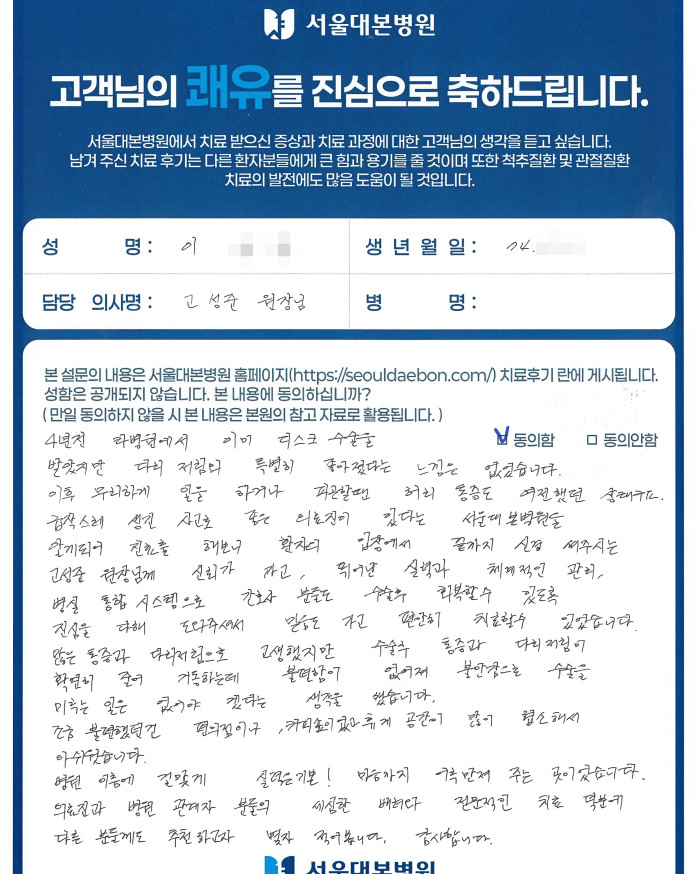 서울대본병원
고객님의 쾌유를 진심으로 축하드립니다.
서울대본병원에서 치료 받으신 증상과 치료 과정에 대한 고객님의 생각을 듣고 싶습니다.
남겨 주신 치료 후기는 다른 환자분들에게 큰 힘과 용기를 줄 것이며 또한 척추질환 및 관절질환
치료의 발전에도 많음 도움이 될 것입니다.
성 명 : 이
생 년 월 일 : 74.
담당 의사명 : 고성준 원장님
병 명 :
본 설문의 내용은 서울대본병원 홈페이지(https://seouldaebon.com/) 치료후기 란에 게시됩니다.
성함은 공개되지 않습니다. 본 내용에 동의하십니까?
( 만일 동의하지 않을 시 본 내용은 본원의 참고 자료로 활용됩니다. )
동의함 동의안함
4년전 타병원에서 이미 디스크 수술을
받았지만 다리 저림의 특별히 좋아졌다는 느낌은 없었습니다.
이후 무리하게 일을 하거나 피곤할땐 허리 통증도 여전했던 상태구요.
급작스레 생긴 사고로 좋은 의료진이 있다는 서울대본병원을
알게되어 진료를 해보니 환자의 입장에서 끝까지 신경 써주시는
고성준 원장님께 신뢰가 가고, 뛰어난 실력과 체계적인 관리,
병실 통합 시스템으로 간호사 분들도 수술후 회복할수 있도록
진심을 다해 도와주셔서 믿음도 가고 편안히 치료할수 있었습니다.
많은 통증과 다리저림으로 고생했지만 수술후 통증과 다리저림이
확연히 줄어 거동하는데 불편함이 없어져 불안감으로 수술을
미루는 일은 없어야 겠다는 생각을 했습니다.
조금 불편했던건 편의점이나, 커피숍이 없고 휴게 공간이 많이 협소해서
아쉬웠습니다.
병원 이름에 걸맞게 실력은기본! 마음까지 어루만져 주는 곳이었습니다.
의료진과 병원 관계자 분들의 세심한 배려와 전문적인 치료 덕분에
다른 분들께도 추천하고자 몇자 적어봅니다. 감사합니다.
서울대본병원